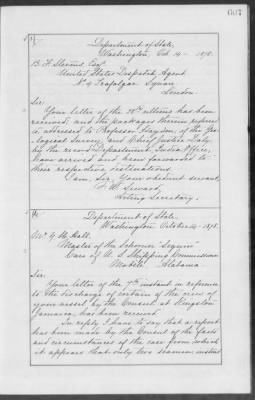 607
Department of State,
Washington, Oct. 14 — 1878.
B. F. Stevens, Esq.
United States Despatch Agent
No 4 Trafalgar Square
London.
Sir:
Your letter of the 28th ultimo has been
received, and the packages therein referred
to, addressed to Professor Hayden, of the Geo-
logical Survey, and Chief Justice Daly,
by the record Department India Office,
have arrived and been forwarded to
their respective destinations.
I am, Sir, Your obedient servant,
F. W. Seward,
Acting Secretary.
Department of State.
Washington October 14 - 1878.
Hall.
Master of the Schooner
Care of U. S. Shipping Commissioner
Mobile Alabama
Sir:
Your letter of the 7th instant in reference
to the discharge of certain of the crew of
your vessel by the Consul at Kingston
Jamaica, has been received.
In reply I have to say that a report
has been made by the Consul of the facts
and circumstances of the case from which
it appears that only two seamen instead